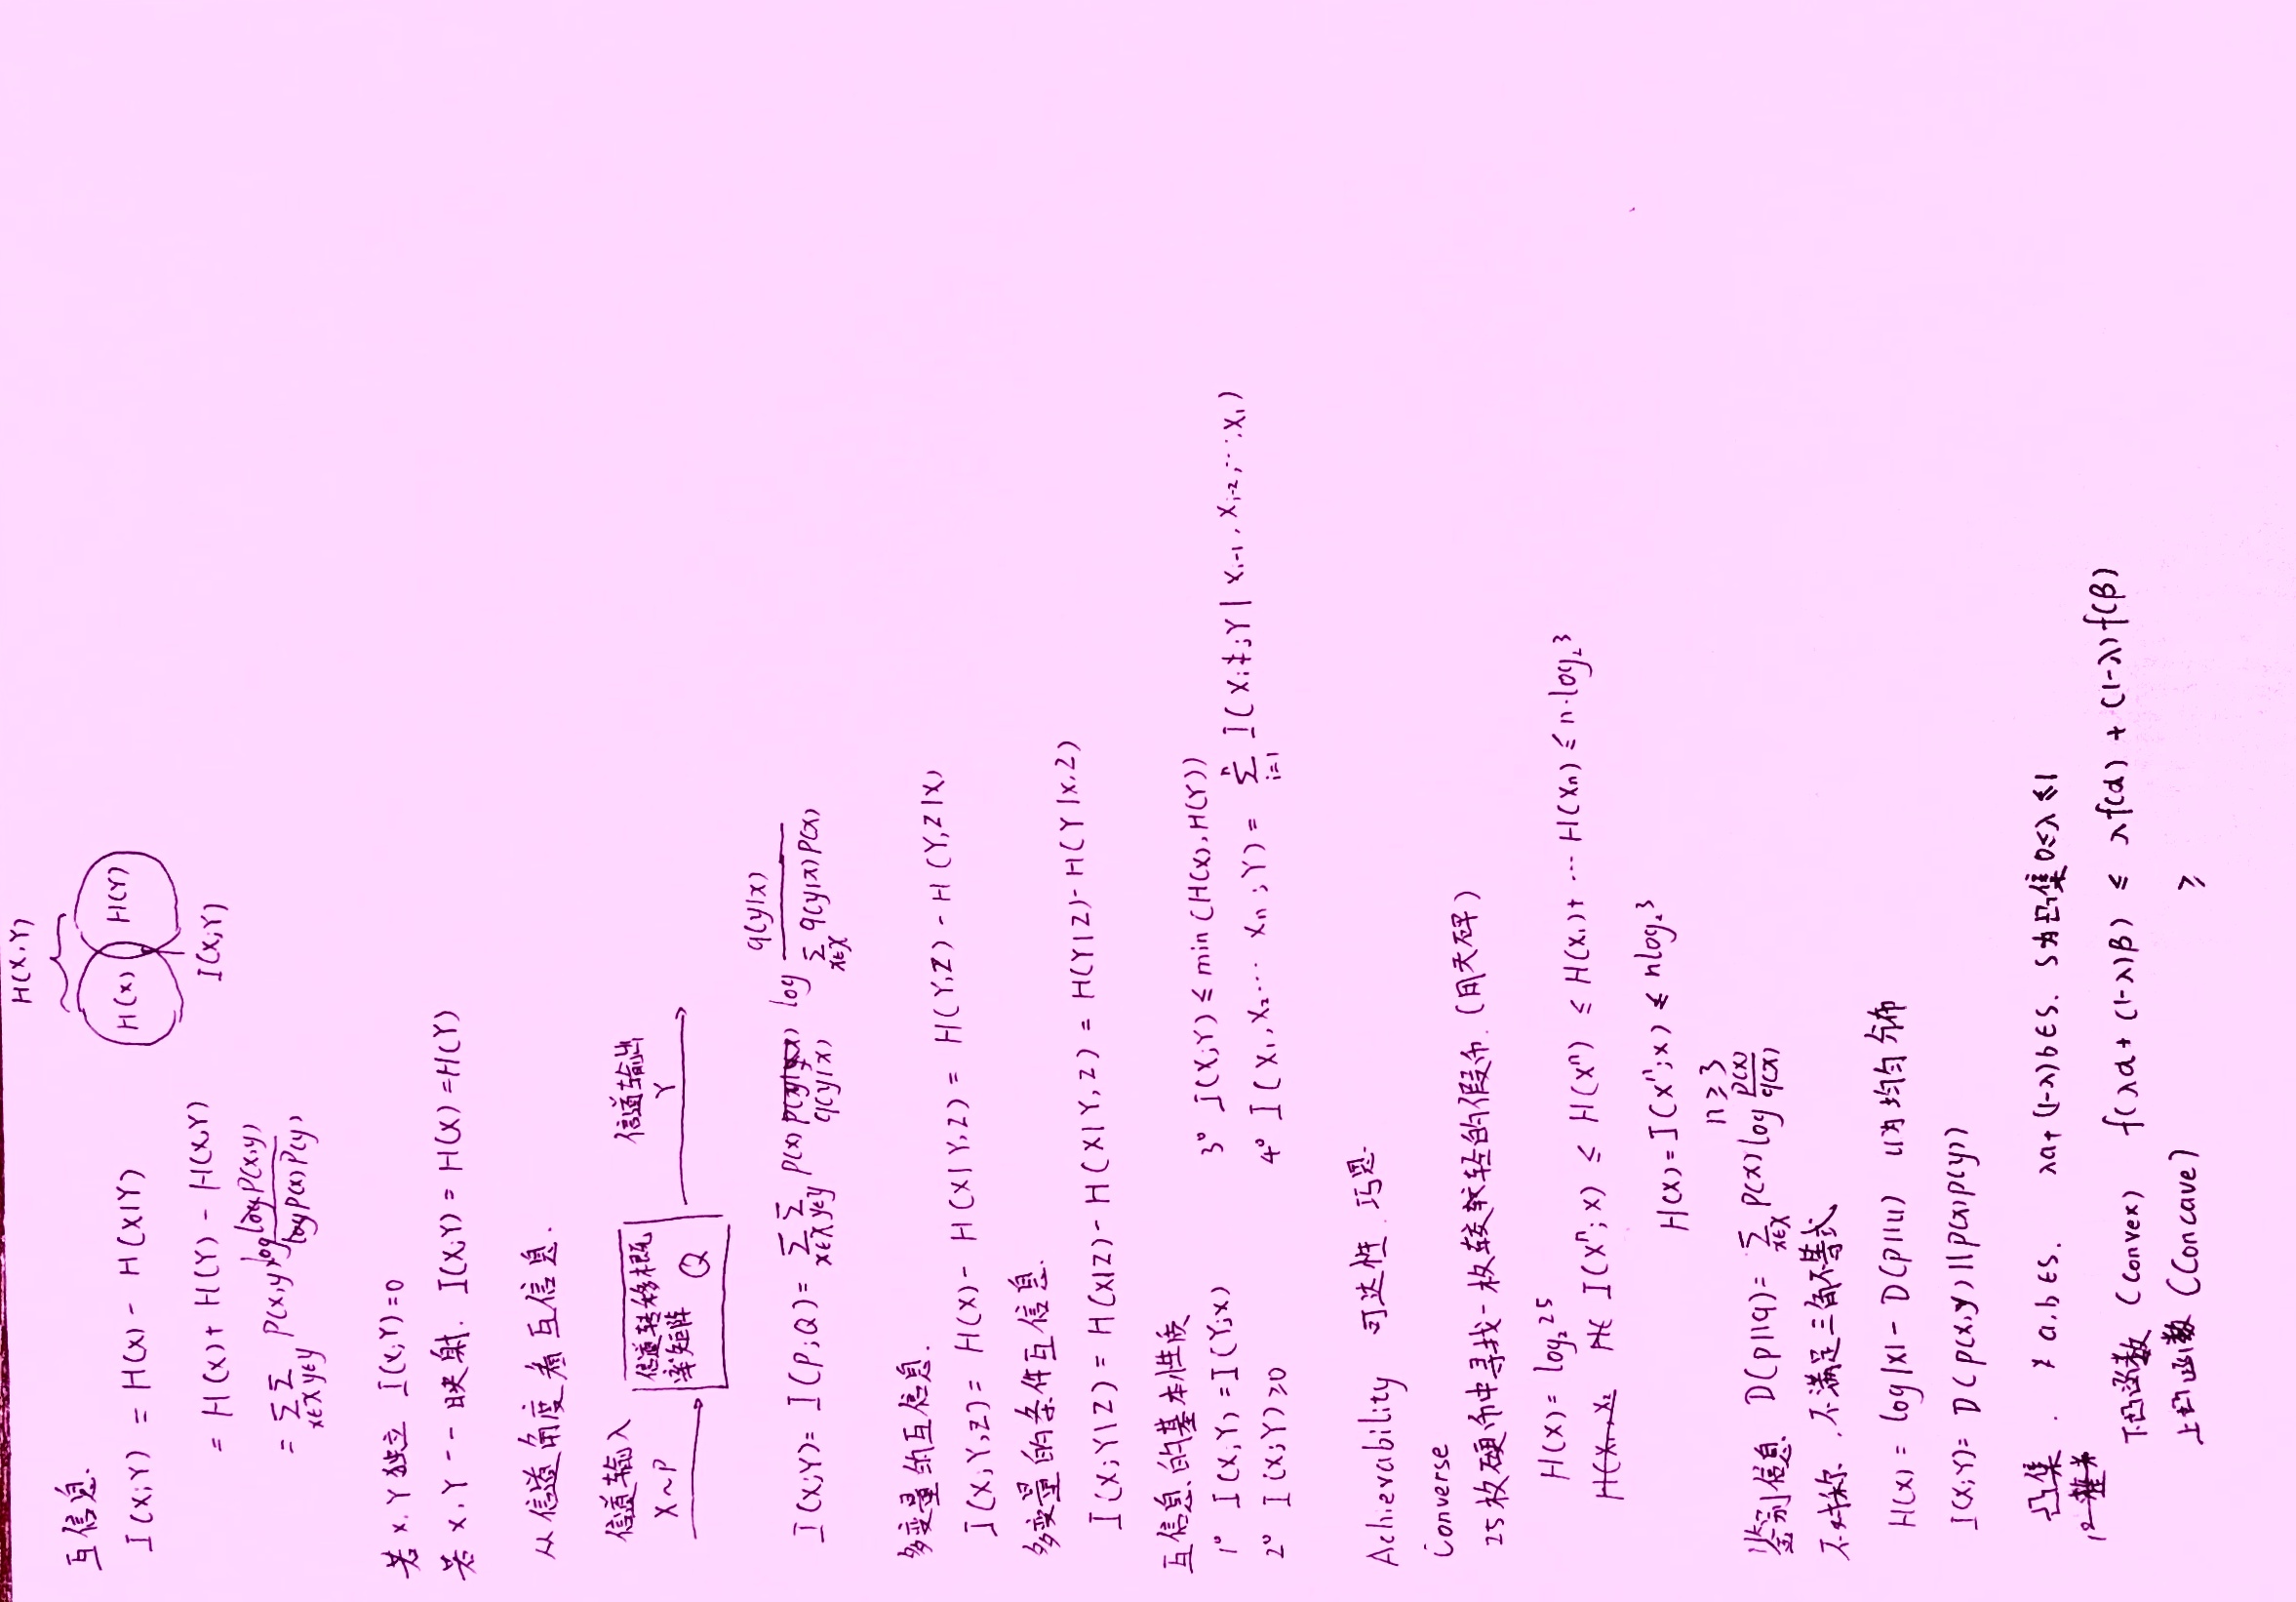 互信息.
H(X,Y)
H(X) H(Y)
I(X;Y)
I(X;Y) = H(X) - H(X|Y)
= H(X) + H(Y) - H(X,Y)
= Σ_{x∈X} Σ_{y∈y} P(x,y) log P(x,y) / P(x) P(y)
若 X, Y 独立 I(X;Y)=0
若 X, Y 一一映射. I(X;Y) = H(X) = H(Y)
从信道角度看互信息.
信道输入 X~P
信道转移概率矩阵 Q
信道输出 Y
I(X;Y) = I(P;Q) = Σ_{x∈X} Σ_{y∈y} P(x) q(y|x) log q(y|x) / Σ_{x∈X} q(y|x) P(x)
多变量的互信息.
I(X;Y,Z) = H(X) - H(X|Y,Z) = H(Y,Z) - H(Y,Z|X)
多变量的条件互信息.
I(X;Y|Z) = H(X|Z) - H(X|Y,Z) = H(Y|Z) - H(Y|X,Z)
互信息的基本性质
1° I(X;Y) = I(Y;X) 3° I(X;Y) ≤ min(H(X), H(Y))
2° I(X;Y) ≥ 0 4° I(X₁, X₂ ⋯ Xn ; Y) = Σ_{i=1}^{n} I(Xi ; Y | Xi-1, Xi-2, ⋯, X₁)
Achievability 可达性 巧思.
Converse
25枚硬币中寻找一枚较轻的假币. (用天砰)
H(X) = log₂25
I(Xⁿ; X) ≤ H(Xⁿ) ≤ H(X₁) + ⋯ H(Xn) ≤ n·log₂3
H(X) = I(Xⁿ; X) ≤ nlog₂3
n ≥ 3
鉴别信息 D(p||q) = Σ_{x∈X} P(x) log P(x)/q(x)
不对称, 不满足三角不等式
H(X) = log|X| - D(p||u) u为均匀分布
I(X;Y) = D(p(x,y)||p(x)p(y))
凸集. a,b∈S. λa+(1-λ)b∈S. S为凸集 0≤λ≤1
下凸函数 (Convex) f(λα + (1-λ)β) ≤ λf(α) + (1-λ)f(β)
上凸函数 (Concave) ≥